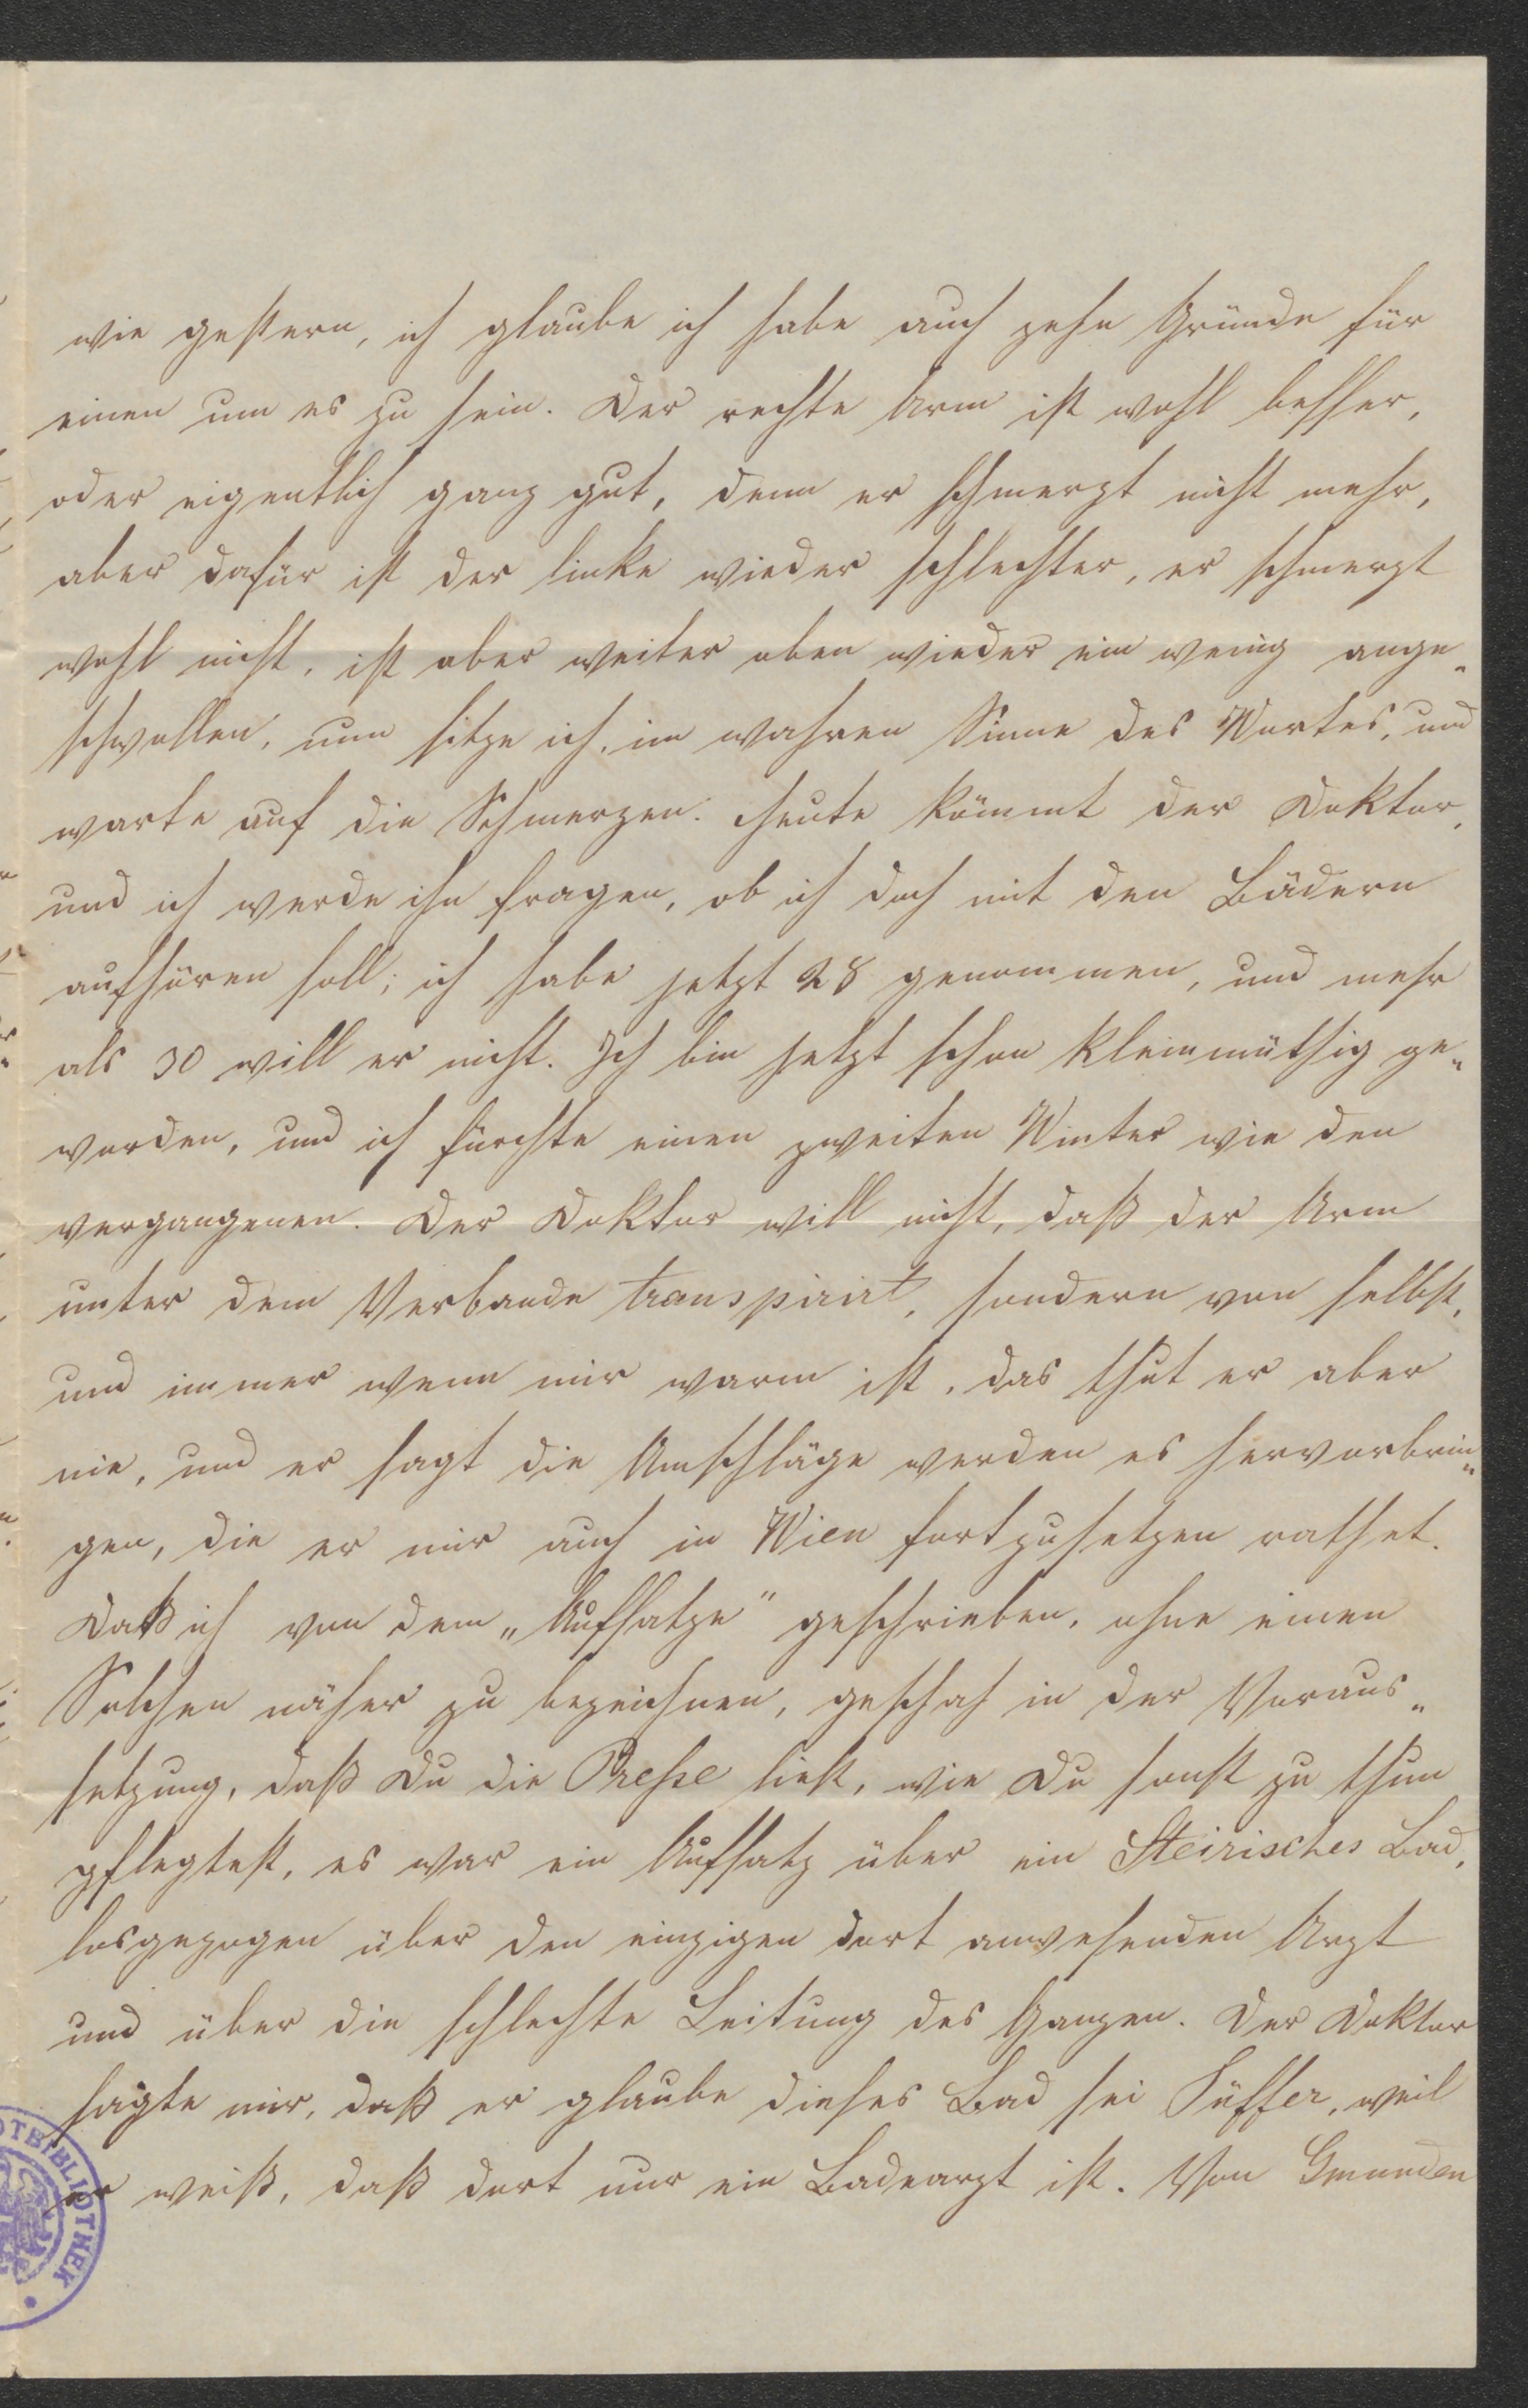 wie gestern, ich glaube ich habe auch zehn Gründe für
einen um es zu sein. Der rechte Arm ist wohl besser,
oder eigentlich ganz gut, denn er schmerzt nicht mehr,
aber dafür ist der linke wieder schlechter, er schmerzt
wohl nicht, ist aber weiter oben wieder ein wenig ange„
schwollen, nun sitze ich, im wahren Sinne des Wortes, und
warte auf die Schmerzen. Heute kömmt der Doktor,
und ich werde ihn fragen, ob ich doch mit den Bädern
aufhören soll; ich habe jetzt 28 genommen, und mehr
als 30 will er nicht. Ich bin jetzt schon kleinmüthig ge„
worden, und ich fürchte einen zweiten Winter wie den
vergangenen. Der Doktor will nicht, daß der Arm
unter dem Verbande transpirirt, sondern von selbst,
und immer wenn mir warm ist, das thut er aber
nie, und er sagt die Umschläge werden es hervorbrin„
gen, die er mir auch in Wien fortzusetzen rathet.
Daß ich von dem „Aufsatze“ geschrieben, ohne einen
Solchen näher zu bezeichnen, geschah in der Voraus„
setzung, daß Du die Presse liest, wie Du sonst zu thun
pflegtest, es war ein Aufsatz über ein Steirisches Bad,
losgezogen über den einzigen dort anwesenden Arzt
und über die schlechte Leitung des Ganzen. Der Doktor
sagte mir, daß er glaube dieses Bad sei Tüffer, weil
er weiß, daß dort nur ein Badearzt ist. Von Gmunden
OTBIBLIOTHEK